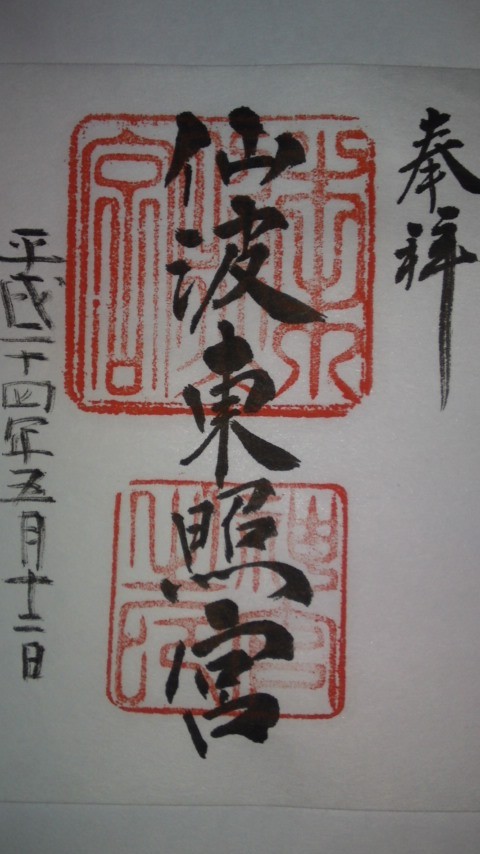 奉拝
仙波東照宮
平成二十四年五月十二日